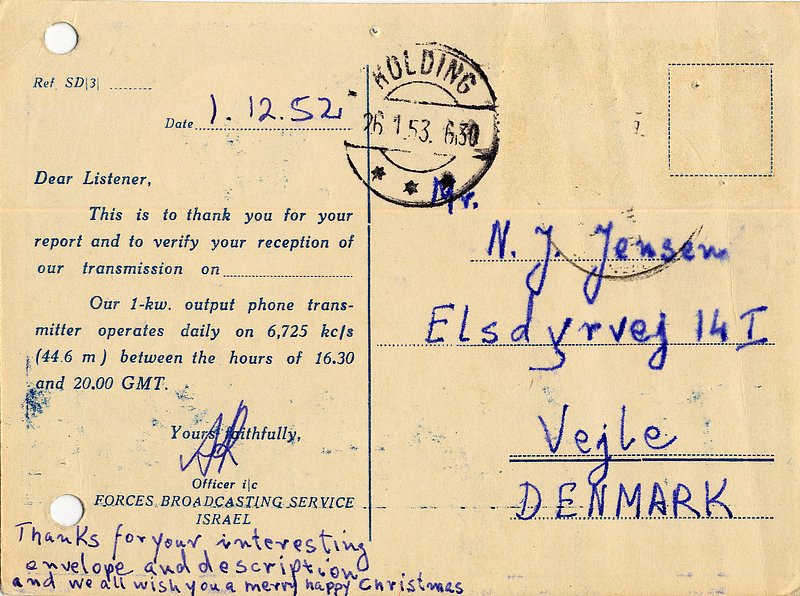 Ref. SD|3|
Date 1.12.52
Dear Listener,
This is to thank you for your
report and to verify your reception of
our transmission on
Our 1-kw. output phone trans-
mitter operates daily on 6,725 kc/s
(44.6 m) between the hours of 16.30
and 20.00 GMT.
Yours faithfully,
Officer i|c
FORCES BROADCASTING SERVICE
ISRAEL
Thanks for your interesting
envelope and description
and we all wish you a merry happy Christmas
KOLDING
26.1.53. 630
Mr.
N. J. Jensen
Elsdyrvej 14 I
Vejle
DENMARK